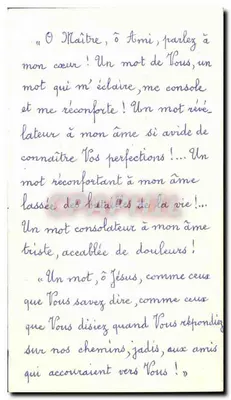 « O Maître, ô Ami, parlez à
mon cœur ! Un mot de Vous, un
mot qui m'éclaire, me console
et me réconforte ! Un mot révé-
lateur à mon âme si avide de
connaître Vos perfections !... Un
mot réconfortant à mon âme
lassée de la vie !...
Un mot consolateur à mon âme
triste, accablée de douleurs !
« Un mot, ô Jésus, comme ceux
que Vous savez dire, comme ceux
que Vous disiez quand Vous répondiez
sur nos chemins, jadis, aux amis
qui accouraient vers Vous ! »